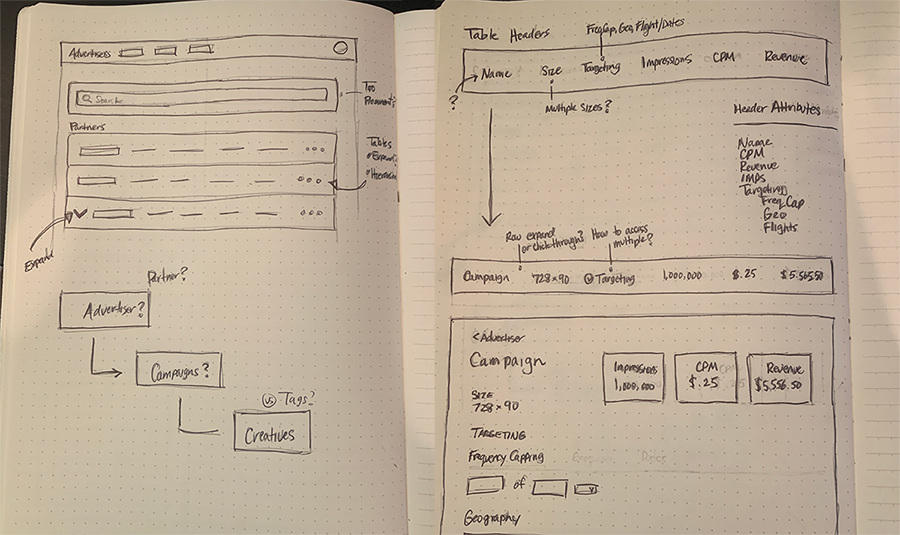 Advertisers
Search
Too
Prominent?
Partners
Tables
Expand?
Expand
Partner?
Advertiser?
Campaigns?
vs Tags?
Creatives
Table Headers
Freq Cap, Geo, Flight/Dates
Name Size Targeting Impressions CPM Revenue
?
Multiple Sizes?
Header Attributes
Name
CPM
Revenue
IMPs
Targeting
Freq Cap
Geo
Flights
Row expand
or click-through?
How to access
multiple?
Campaign 728×90 Targeting 1,000,000 $.25 $5,565.50
< Advertiser
Campaign
Impressions
1,000,000
CPM
$.25
Revenue
$5,556.50
Size
728×90
Targeting
Frequency Capping
of
Geography